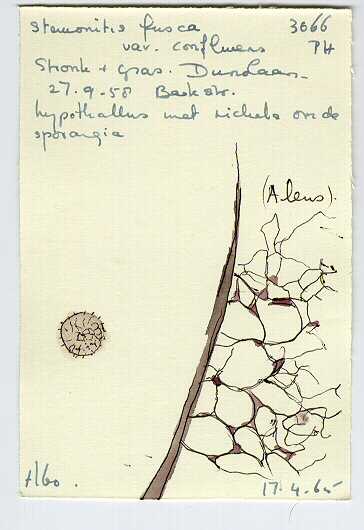 Stemonitis fusca 3066
var. confluens PH
Stronk + gras. Duinlaan
27.9.58 Bockstr.
hypothallus met richels om de
sporangia
(A lens).
Abo. 17.4.65